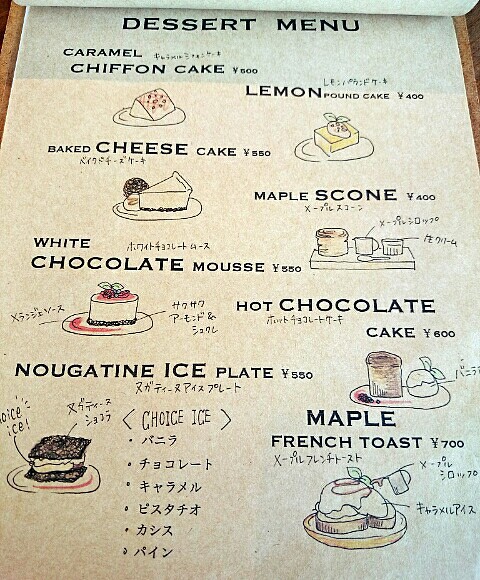 DESSERT MENU
CARAMEL キャラメルシフォンケーキ
CHIFFON CAKE ¥500
レモンパウンドケーキ
LEMON POUND CAKE ¥400
BAKED CHEESE CAKE ¥550
ベイクドチーズケーキ
MAPLE SCONE ¥400
メープルスコーン
メープルシロップ
生クリーム
WHITE ホワイトチョコレートムース
CHOCOLATE MOUSSE ¥550
サクサク
アーモンド&
HOT CHOCOLATE
ホットチョコレートケーキ CAKE ¥600
バニラ
NOUGATINE ICE PLATE ¥550
ヌガティーヌアイスプレート
ヌガティーヌ
ショコラ
〈 CHOICE ICE 〉
・バニラ
・チョコレート
・キャラメル
・ピスタチオ
・カシス
・パイン
MAPLE
FRENCH TOAST ¥700
メープルフレンチトースト
メープル
シロップ
キャラメルアイス